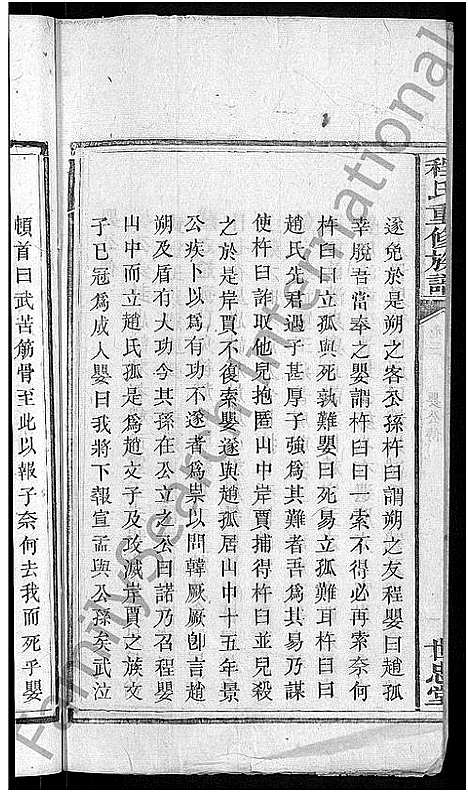 程氏重修族譜
世忠堂
遂免於是朔之客公孫杵臼謂朔之友程嬰曰趙孤
幸脫吾當奉之嬰謂杵臼曰一索不得必再索奈何
杵臼曰立孤與死孰難嬰曰死易立孤難耳杵臼曰
趙氏先君遇子甚厚子強為其難者吾為其易乃謀
使杵臼詐取他兒抱匿山中岸賈捕得杵臼並兒殺
之於是岸賈不復索嬰遂與趙孤居山中十五年景
公疾卜以為有功不遂者為祟以問韓厥厥卽言趙
朔及盾有大功今其孫在公立之公曰諾乃召程嬰
山中而立趙氏孤是為趙文子及攻滅岸賈之族文
子已冠為成人嬰曰我將下報宣孟與公孫矣武泣
頓首曰武苦筋骨至此以報子奈何去我而死乎嬰
FamilySearch International